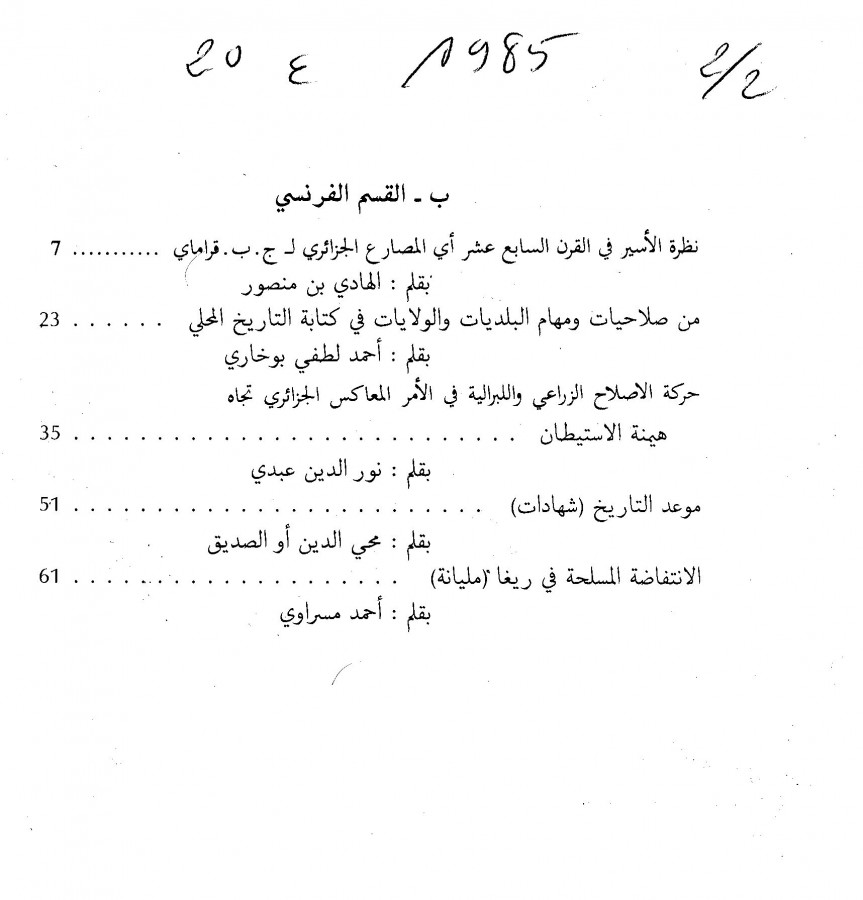 20 ع 1985 2/2
ب - القسم الفرنسي
نظرة الأسير في القرن السابع عشر أي المصارع الجزائري لـ ج.ب. قراماي ........... 7
بقلم : الهادي بن منصور
من صلاحيات ومهام البلديات والولايات في كتابة التاريخ المحلي . . . . . . 23
بقلم : أحمد لطفي بوخاري
حركة الاصلاح الزراعي واللبرالية في الأمر المعاكس الجزائري تجاه
هيمنة الاستيطان . . . . . . . . . . . . . . . . . . . . . . . . . . . 35
بقلم : نور الدين عبدي
موعد التاريخ (شهادات) . . . . . . . . . . . . . . . . . . . . . . . . . 51
بقلم : محي الدين أو الصديق
الانتفاضة المسلحة في ريغا (مليانة) . . . . . . . . . . . . . . . . . . . . 61
بقلم : أحمد مسراوي